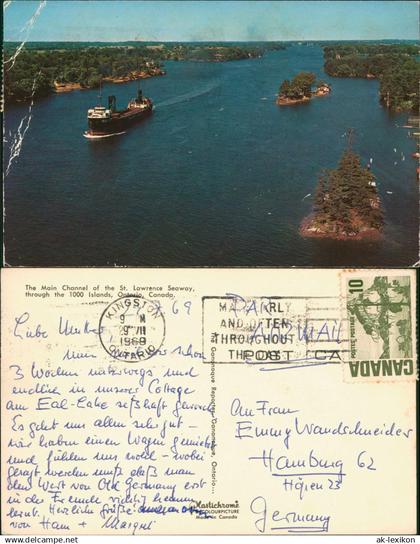 The Main Channel of the St. Lawrence Seaway,
through the 1000 Islands, Ontario, Canada.
69
KINGSTON
9 M
29 VII
1969
ONTARIO
MAIL EARLY
AND OFTEN
THROUGHOUT
THE DAY
PAR
AIR MAIL
POST CA
10
CANADA
Liebe
nun schon
3 Wochen unterwegs und
endlich in unserer Cottage
am Eal-Lake seßhaft geworden.
Es geht uns allen sehr gut -
wir haben einen Wagen gemietet
und fühlen uns wohl - wobei
gesagt werden muß daß man
den Wert von Old Germany erst
in der Fremde richtig kennen
lernt. Herzliche Grüße
von Ham + Margret
The Gananoque Reporter, Gananoque, Ontario
Plastichrome
COLOURPICTURE
Made in Canada
An Frau
Emmy Wandschneider
Hamburg 62
Höfen 23
Germany
© www.ak-ansichtskarten.de
ak-lexikon.com